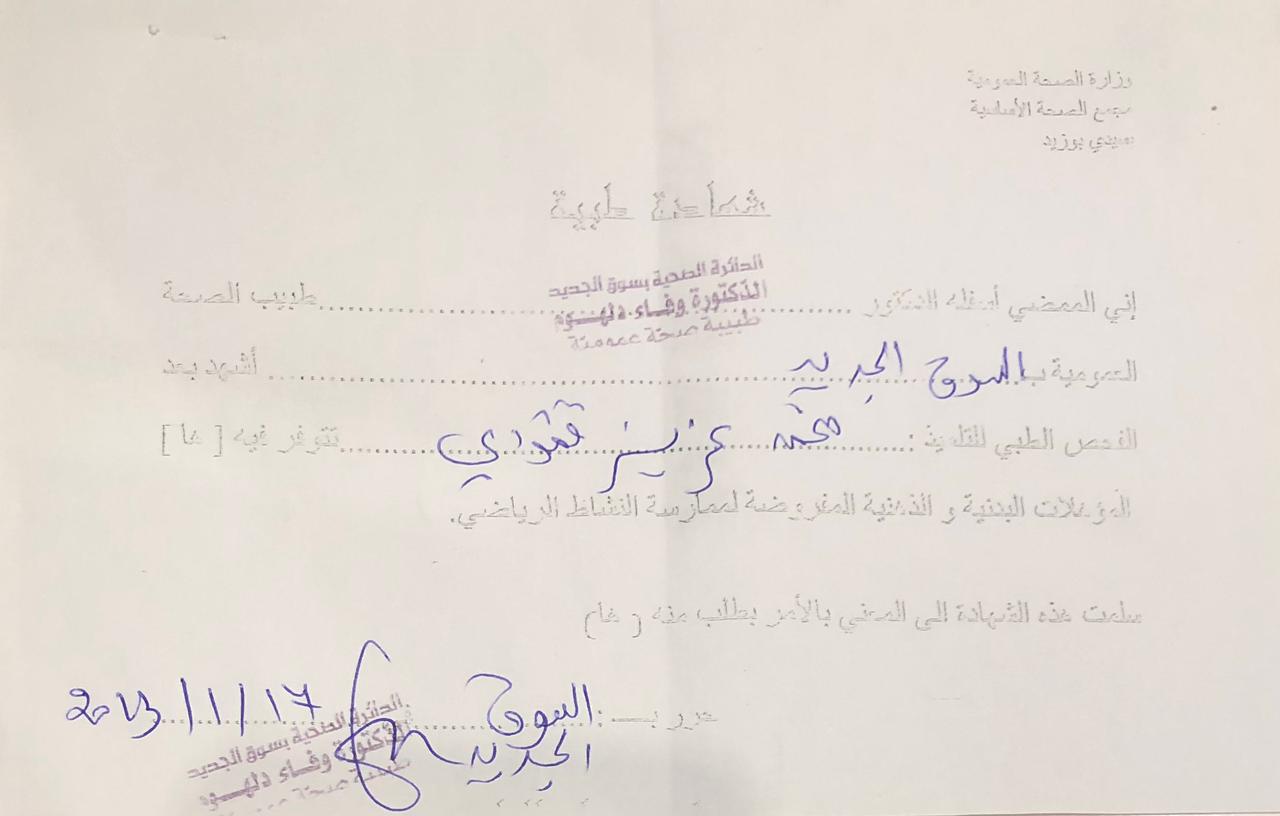 وزارة الصحة العمومية
مجمع الصحة الأساسية
سيدي بوزيد
شهادة طبية
الدائرة الصحية بسوق الجديد
الدكتورة وفاء دلهوم
طبيبة صحة عمومية
إني الممضي أسفله الدكتور ........ طبيب الصحة
العمومية بـالسوق الجديد ........ أشهد بعد
الفحص الطبي للتلميذ : محمد عزيز قمودي ........ تتوفر فيه [ ها ]
المؤهلات البدنية و الذهنية المفروضة لممارسة النشاط الرياضي.
سلمت هذه الشهادة الى المعني بالأمر بطلب منه ( ها)
حرر بـ : السوق الجديد 2023/1/17
الدائرة الصحية بسوق الجديد
الدكتورة وفاء دلهوم
طبيبة صحة